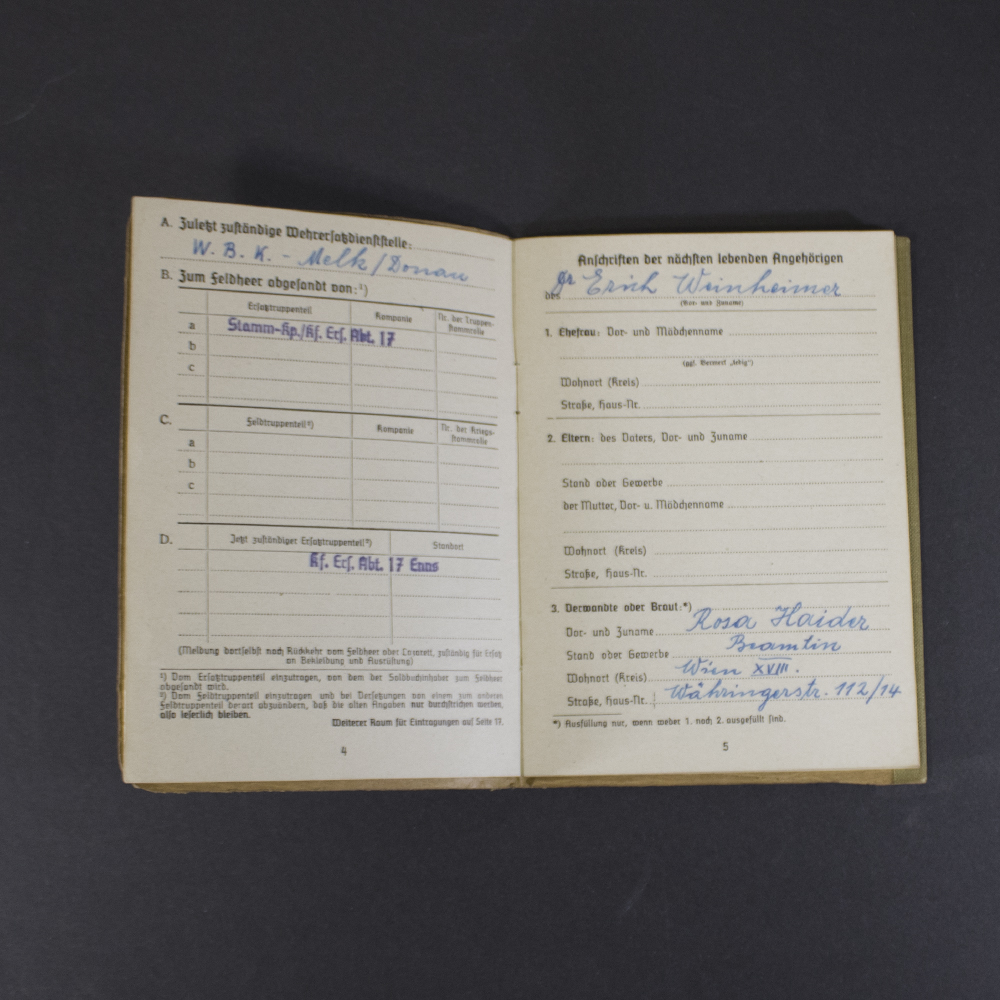 A. Zuletzt zuständige Wehrersatzdienststelle:
W. B. K. - Melk / Donau
B. Zum Feldheer abgesandt von:¹)
Ersatztruppenteil Kompanie Nr. der Truppen-stammrolle
a Stamm-Kp./Kf. Ers. Abt. 17
b
c
C. Feldtruppenteil²) Kompanie Nr. der Kriegs-stammrolle
a
b
c
D. Jetzt zuständiger Ersatztruppenteil²) Standort
Kf. Ers. Abt. 17 Enns
(Meldung dortselbst nach Rückkehr vom Feldheer oder Lazarett, zuständig für Ersatz
an Bekleidung und Ausrüstung)
¹) Vom Ersatztruppenteil einzutragen, von dem der Soldbuchinhaber zum Feldheer
abgesandt wird.
²) Vom Feldtruppenteil einzutragen und bei Versetzungen von einem zum anderen
Feldtruppenteil derart abzuändern, daß die alten Angaben nur durchstrichen werden,
also leserlich bleiben.
Weiterer Raum für Eintragungen auf Seite 17.
4
Anschriften der nächsten lebenden Angehörigen
des Erich Weinheimer
(Vor- und Zuname)
1. Ehefrau: Vor- und Mädchenname
(ggf. Vermerk „ledig“)
Wohnort (Kreis)
Straße, Haus-Nr.
2. Eltern: des Vaters, Vor- und Zuname
Stand oder Gewerbe
der Mutter, Vor- u. Mädchenname
Wohnort (Kreis)
Straße, Haus-Nr.
3. Verwandte oder Braut:*)
Vor- und Zuname Rosa Haider
Stand oder Gewerbe Beamtin
Wohnort (Kreis) Wien XVIII.
Straße, Haus-Nr. Währingerstr. 112/14
*) Ausfüllung nur, wenn weder 1. noch 2. ausgefüllt sind.
5